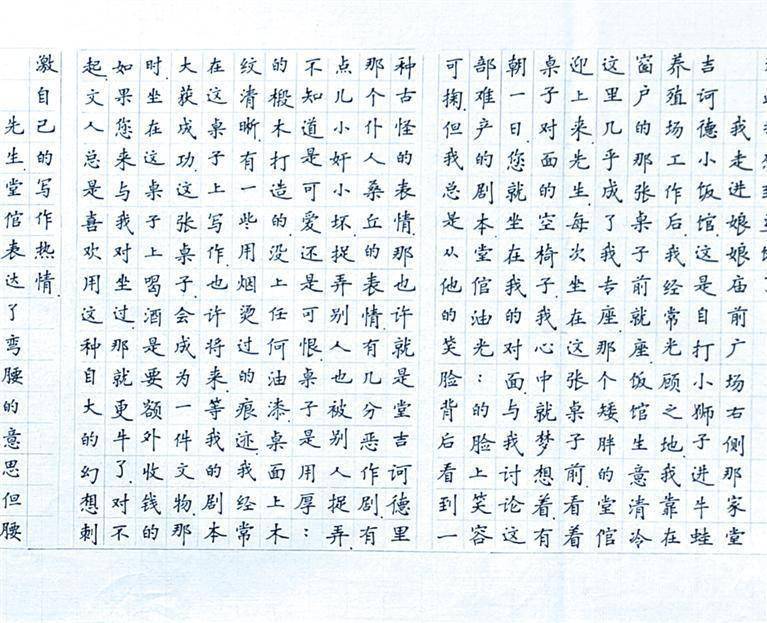 我走进娘娘庙前广场右侧那家堂
吉诃德小饭馆.这是自打小狮子进牛蛙
养殖场工作后我经常光顾之地.我靠在
窗户的那张桌子前就座.饭馆生意清冷
这里几乎成了我专座.那个矮胖的堂倌
迎上来.先生每次坐在这张桌子前.看着
桌子对面的空椅子.我心中就梦想着有
朝一日.您就坐在我的对面与我讨论这
部难产的剧本.堂倌油光:的脸上笑容
可掬.但我总是从他的笑脸背后看到一
种古怪的表情.那也许就是堂吉诃德里
那个仆人桑丘的表情.有几分恶作剧.有
点儿小奸小坏.捉弄别人也被别人捉弄.
不知道是可爱还是可恨.桌子是用厚:
的椴木打造的.没上任何油漆.桌面上木
纹清晰.有一些用烟烫过的痕迹.我经常
在这桌子上写作.也许将来.等我的剧本
大获成功.这张桌子会成为一件文物.那
时坐在这桌子上喝酒是要额外收钱的
如果您来与我对坐过.那就更牛了.对不
起.文人总是喜欢用这种自大的幻想刺
激自己的写作热情.
先生.堂倌表达了弯腰的意思但腰